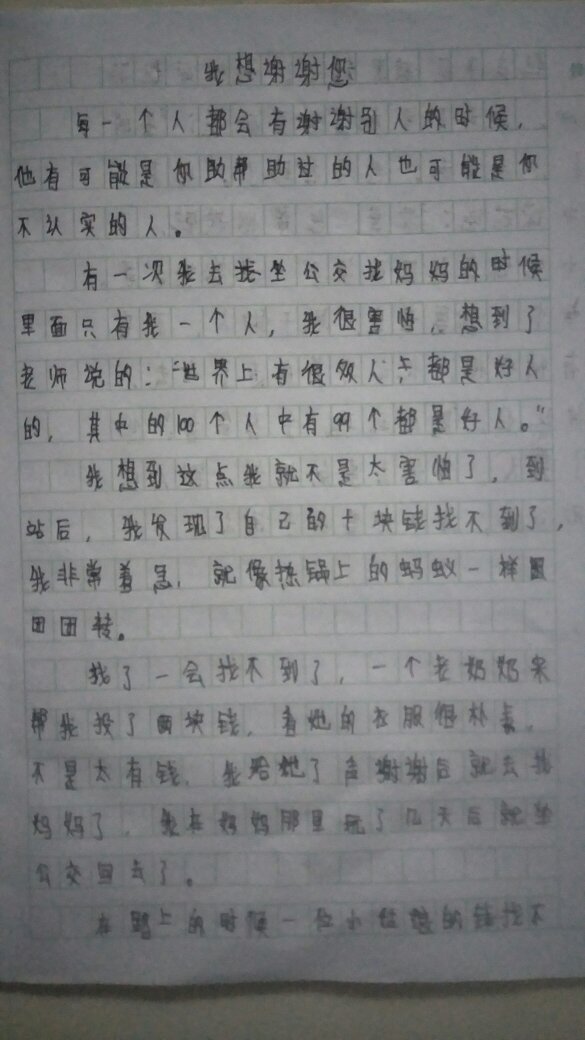 我想谢谢您
每一个人都会有谢谢别人的时候，
他有可能是你助帮助过的人也可能是你
不认实的人。
有一次我去找坐公交找妈妈的时候
里面只有我一个人，我很害怕，想到了
老师说的："世界上有很多人，都是好人
的，其中的100个人中有99个都是好人。"
我想到这点我就不是太害怕了，到
站后，我发现了自己的十块钱找不到了，
我非常着急，就像热锅上的蚂蚁一样团
团团转。
找了一会找不到了，一个老奶奶来
帮我投了四块钱，看她的衣服很朴素，
不是太有钱，我给她了声谢谢后就去找
妈妈了，我在妈妈那里玩了几天后就坐
公交回去了。
在路上的时候一位小姑娘的钱找不